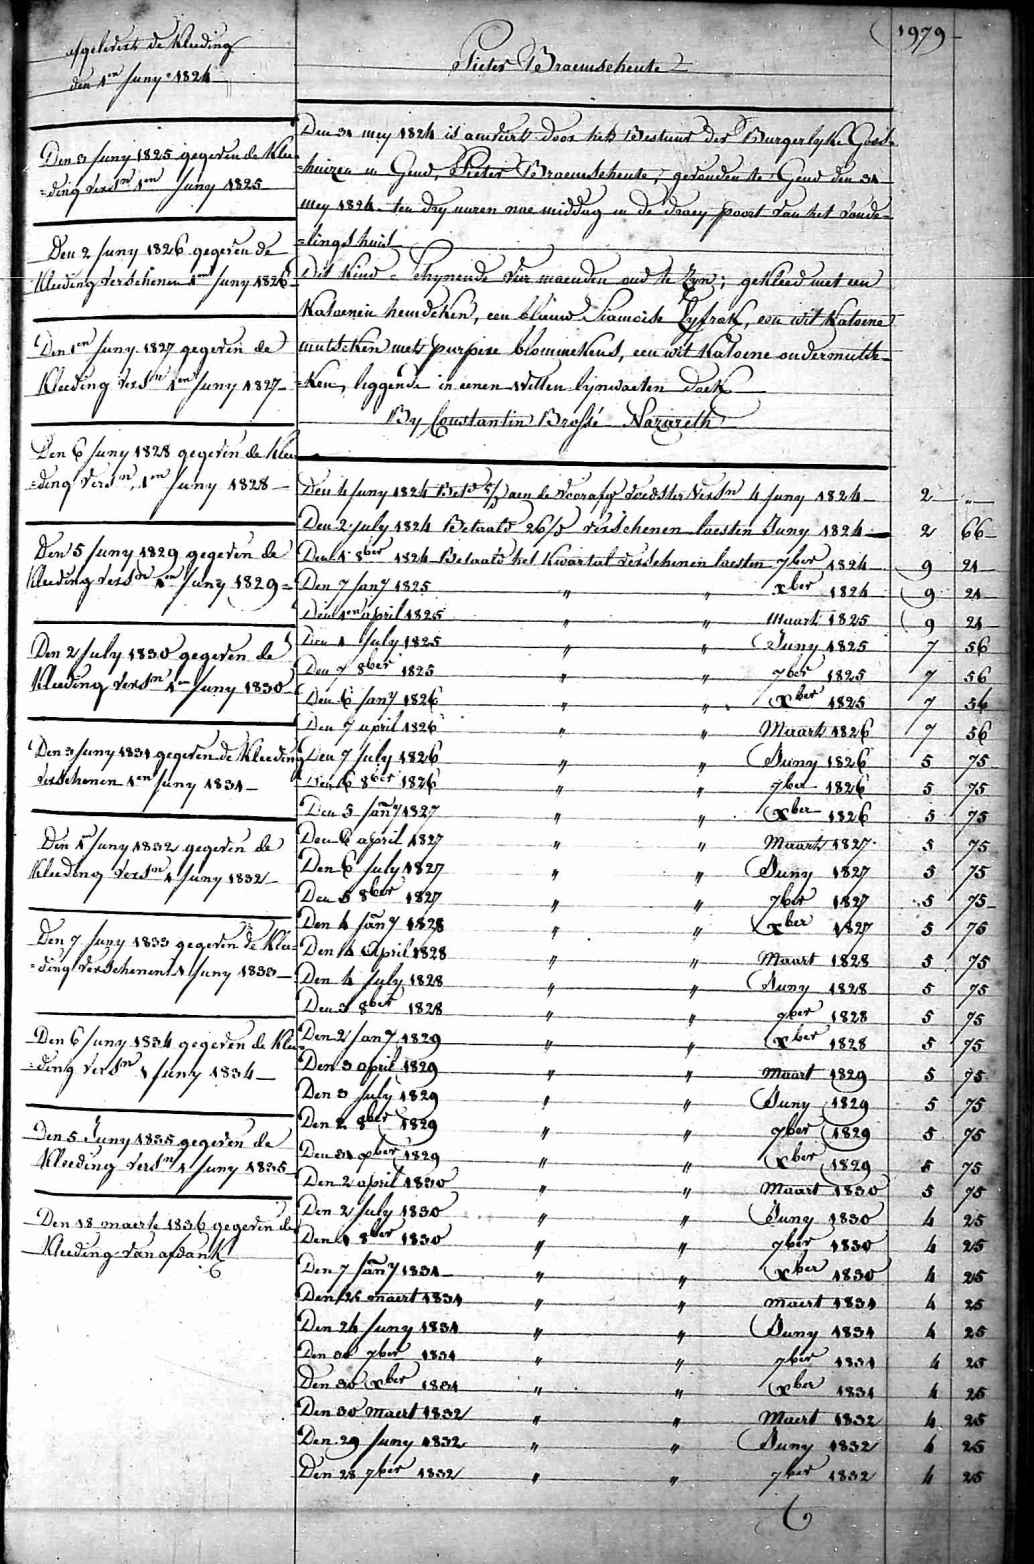 1979
Pieter Braemscheute
afgeleverd de Kleeding
den 1en Juny 1824
Den 3 Juny 1825 gegeven de Klee-
=ding versn 1en Juny 1825
Den 2 Juny 1826 gegeven de
Kleeding verschenen 1en Juny 1826
Den 1en Juny 1827 gegeven de
Kleeding versn 1en Juny 1827
Den 6 Juny 1828 gegeven de Klee
=ding versn 1en Juny 1828
Den 5 Juny 1829 gegeven de
Kleeding versn 1en Juny 1829
Den 2 July 1830 gegeven de
Kleeding versn 1en Juny 1830
Den 3 Juny 1831 gegeven de Kleeding
verschenen 1en Juny 1831
Den 1 Juny 1832 gegeven de
Kleeding versn 1 Juny 1832
Den 7 Juny 1833 gegeven de Klee-
=ding verschenen 1 Juny 1833
Den 6 Juny 1834 gegeven de Klee-
=ding versn 1 Juny 1834
Den 5 Juny 1835 gegeven de
Kleeding versn 1 Juny 1835
Den 18 maerte 1836 gegeven de
Kleeding van afdank
Den 31 mey 1824 is aenvard door het Bestuur der Burgerlyke Gods-
=huizen in Gend, Pieter Braemscheute, gevonden te Gend den 31
mey 1824 ten dry uuren nae middag in de draey poort van het vonde-
=lingshuis
Dit Kind schynende vier maenden oud te zyn; gekleed met een
Katoenen hemdeken, een blauw Siamoise lyfrok, een wit Katoene
mutseken met purpere blommekens, een wit Katoene ondermutse-
=ken, liggende in eenen witten lynwaeten doek
By Constantin Brossé Nazareth
Den 4 Juny 1824 aen de voorafg voedster versn 4 Juny 1824 2 "
Den 2 July 1824 Betaald 26/5 verschenen laesten Juny 1824 2 66
Den 1 8ber 1824 Betaald het Kwartal verschenen laesten 7ber 1824 9 21
Den 7 Jany 1825 " " xber 1824 9 21
Den 1en april 1825 " " Maart 1825 9 21
Den 1 July 1825 " " Juny 1825 7 56
Den 7 8ber 1825 " " 7ber 1825 7 56
Den 6 Jany 1826 " " xber 1825 7 56
Den 7 april 1826 " " Maart 1826 7 56
Den 7 July 1826 " " Juny 1826 5 75
Den 6 8ber 1826 " " 7ber 1826 5 75
Den 5 Jany 1827 " " xber 1826 5 75
Den 6 april 1827 " " Maart 1827 5 75
Den 6 July 1827 " " Juny 1827 5 75
Den 5 8ber 1827 " " 7ber 1827 5 75
Den 4 Jany 1828 " " xber 1827 5 75
Den 14 April 1828 " " Maart 1828 5 75
Den 4 July 1828 " " Juny 1828 5 75
Den 3 8ber 1828 " " 7ber 1828 5 75
Den 2 Jany 1829 " " xber 1828 5 75
Den 3 april 1829 " " Maart 1829 5 75
Den 3 July 1829 " " Juny 1829 5 75
Den 2 8ber 1829 " " 7ber 1829 5 75
Den 31 xber 1829 " " xber 1829 5 75
Den 2 april 1830 " " Maart 1830 5 75
Den 2 July 1830 " " Juny 1830 4 25
Den 1 8ber 1830 " " 7ber 1830 4 25
Den 7 Jany 1831 " " xber 1830 4 25
Den 25 maert 1831 " " maert 1831 4 25
Den 24 Juny 1831 " " Juny 1831 4 25
Den 30 7ber 1831 " " 7ber 1831 4 25
Den 30 xber 1831 " " xber 1831 4 25
Den 30 maert 1832 " " Maert 1832 4 25
Den 29 Juny 1832 " " Juny 1832 4 25
Den 28 7ber 1832 " " 7ber 1832 4 25